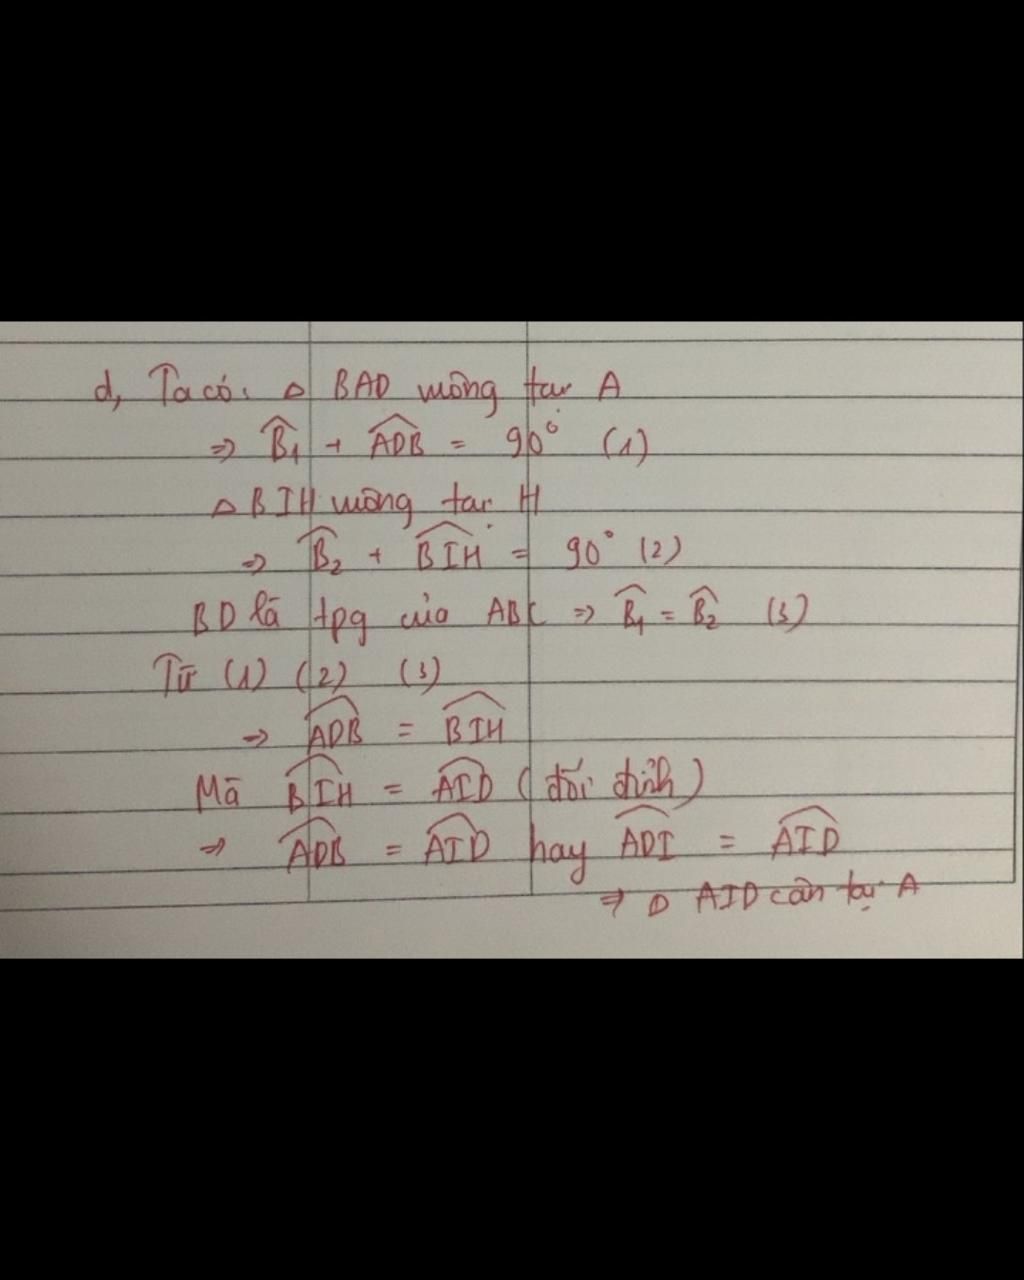 d, Ta có: △ BAD vuông tại A
⇒ B̂₁ + ÂDB = 90° (1)
△ BIH vuông tại H
⇒ B̂₂ + B̂IH = 90° (2)
BD là tpg của ABC ⇒ B̂₁ = B̂₂ (3)
Từ (1) (2) (3)
⇒ ÂDB = B̂IH
Mà B̂IH = ÂID (đối đỉnh)
⇒ ÂDB = ÂID hay ÂDI = ÂID
⇒ △ AID cân tại A